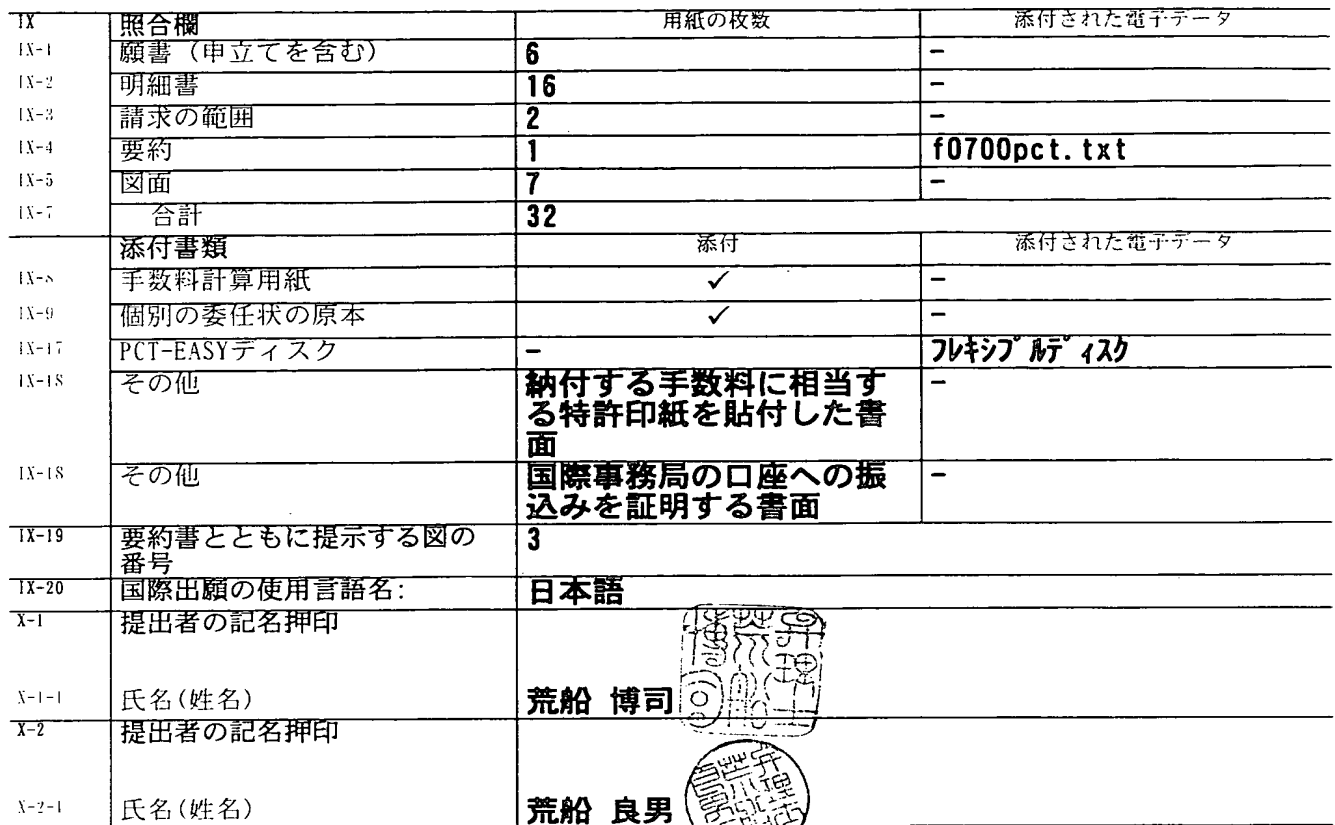 IX 照合欄 用紙の枚数 添付された電子データ
IX-1 願書（申立てを含む） 6 -
IX-2 明細書 16 -
IX-3 請求の範囲 2 -
IX-4 要約 1 f0700pct.txt
IX-5 図面 7 -
IX-7 合計 32
添付書類 添付 添付された電子データ
IX-8 手数料計算用紙 ✓ -
IX-9 個別の委任状の原本 ✓ -
IX-17 PCT-EASYディスク - フレキシブルディスク
IX-18 その他 納付する手数料に相当す -
る特許印紙を貼付した書
面
IX-18 その他 国際事務局の口座への振 -
込みを証明する書面
IX-19 要約書とともに提示する図の 3
番号
IX-20 国際出願の使用言語名: 日本語
X-1 提出者の記名押印
X-1-1 氏名(姓名) 荒船 博司
X-2 提出者の記名押印
X-2-1 氏名(姓名) 荒船 良男